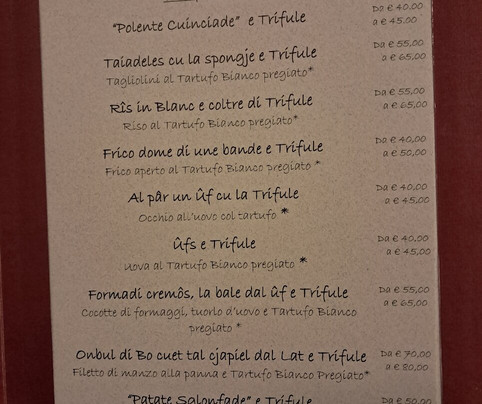 "Polente Cuinciade" e Trifule
Da € 40,00
a € 45,00
Taiadeles cu la spongje e Trifule
Da € 55,00
Tagliolini al Tartufo Bianco pregiato*
a € 65,00
Rîs in Blanc e coltre di Trifule
Da € 55,00
Riso al Tartufo Bianco pregiato*
a € 65,00
Frico dome di une bande e Trifule
Da € 40,00
Frico aperto al Tartufo Bianco pregiato *
a € 50,00
Al pâr un Ûf cu la Trifule
Da € 40,00
Occhio all'uovo col tartufo *
a € 45,00
Ûfs e Trifule
Da € 40,00
Uova al Tartufo Bianco pregiato *
a € 45,00
Formadi cremôs, la bale dal ûf e Trifule
Da € 55,00
Cocotte di formaggi, tuorlo d'uovo e Tartufo Bianco
a € 65,00
pregiato *
Onbul di Bo cuet tal cjapiel dal Lat e Trifule
Da € 70,00
Filetto di manzo alla panna e Tartufo Bianco Pregiato*
a € 80,00
"Patate Salonfade" e Trifule
Da € 50,00